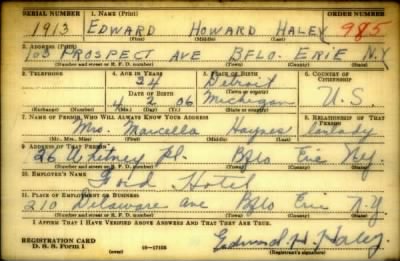 SERIAL NUMBER 1. NAME (Print) ORDER NUMBER
1913 EDWARD HOWARD HALEY 985
(First) (Middle) (Last)
2. ADDRESS (Print)
103 PROSPECT AVE BFLO. ERIE N.Y.
(Number and street or R. F. D. number) (Town) (County) (State)
3. TELEPHONE 4. AGE IN YEARS 5. PLACE OF BIRTH 6. COUNTRY OF CITIZENSHIP
34 Detroit
DATE OF BIRTH (Town or county)
4 2 06 Michigan U.S.
(Exchange) (Number) (Mo.) (Day) (Yr.) (State or country)
7. NAME OF PERSON WHO WILL ALWAYS KNOW YOUR ADDRESS 8. RELATIONSHIP OF THAT PERSON
Mrs. Marcella Haynes Lanlady
(Mr., Mrs., Miss) (First) (Middle) (Last)
9. ADDRESS OF THAT PERSON
26 Whitney Pl. Bflo Erie N.Y.
(Number and street or R. F. D. number) (Town) (County) (State)
10. EMPLOYER'S NAME
Ford Hotel
11. PLACE OF EMPLOYMENT OR BUSINESS
210 Delaware ave Bflo Erie N.Y.
(Number and street or R. F. D. number) (Town) (County) (State)
I AFFIRM THAT I HAVE VERIFIED ABOVE ANSWERS AND THAT THEY ARE TRUE.
REGISTRATION CARD
D. S. S. Form 1 (over) 16—17105 Edward H. Haley